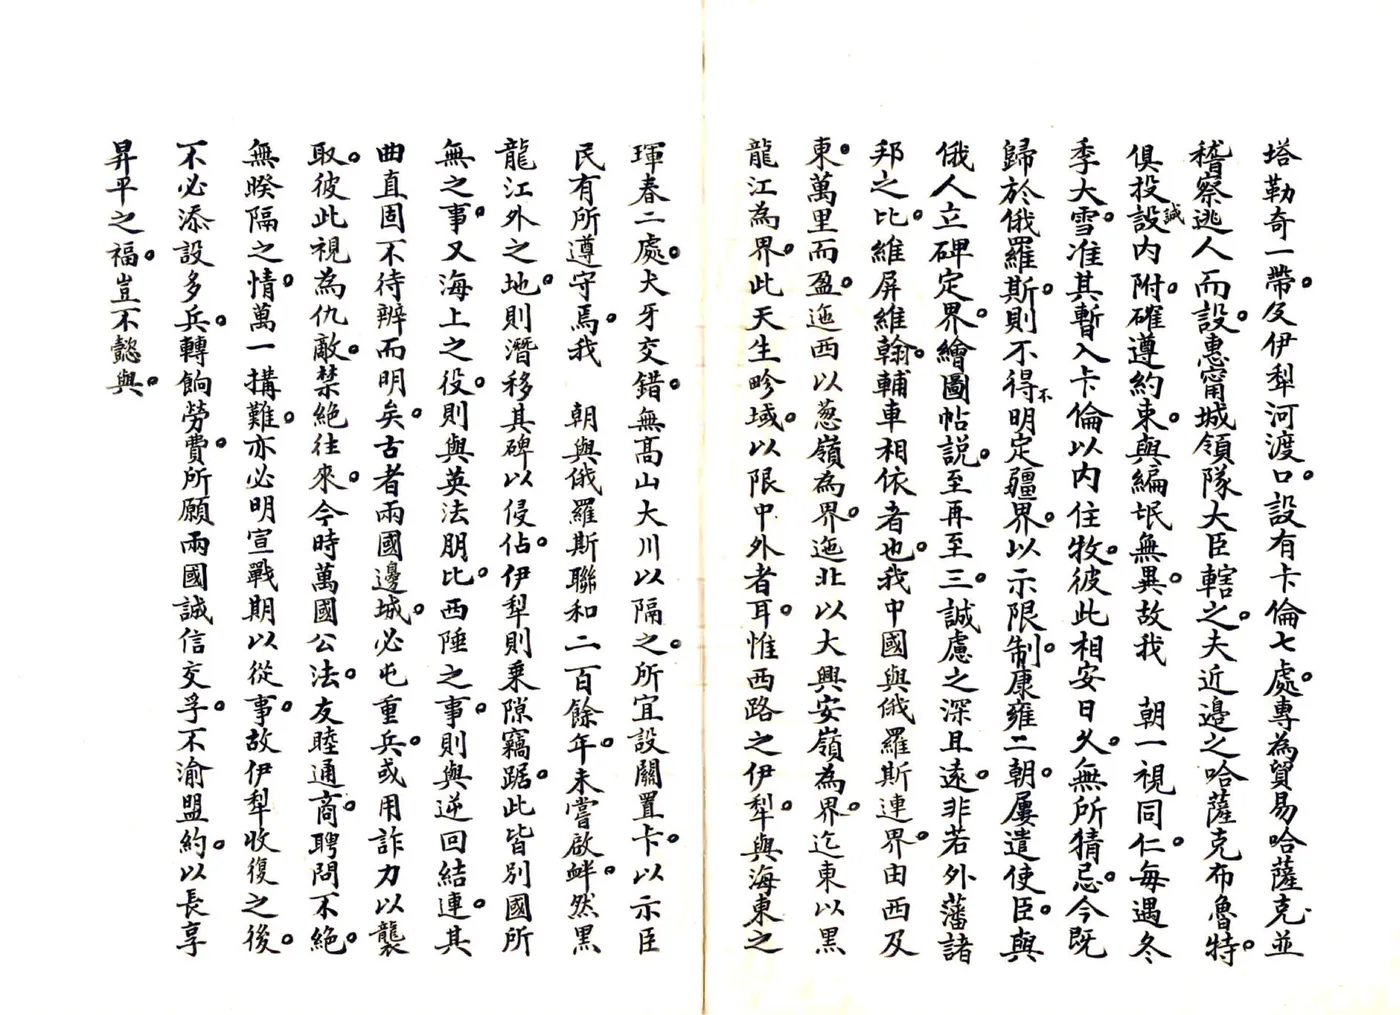 塔勒奇一帶。及伊犁河渡口。設有卡倫七處。專為貿易哈薩克。並
稽察逃人而設。惠甯城領隊大臣轄之。夫近邊之哈薩克布魯特。
俱投誠設內附。確遵約束。與編氓無異。故我　朝一視同仁。每遇冬
季大雪。准其暫入卡倫以內住牧。彼此相安日久。無所猜忌。今既
歸於俄羅斯。則不得不明定疆界。以示限制。康雍二朝。屢遣使臣。與
俄人立碑定界。繪圖帖說。至再至三。誠慮之深且遠。非若外藩諸
邦之比。維屏維翰。輔車相依者也。我中國與俄羅斯連界。由西及
東。萬里而盈。迤西以葱嶺為界。迤北以大興安嶺為界。迄東以黑
龍江為界。此天生畛域。以限中外者耳。惟西路之伊犁。與海東之
琿春二處。犬牙交錯。無高山大川以隔之。所宜設關置卡。以示臣
民有所遵守焉。我　朝與俄羅斯聯和二百餘年。未嘗啟衅。然黑
龍江外之地。則潛移其碑以侵佔。伊犁則乘隙竊踞。此皆別國所
無之事。又海上之役。則與英法朋比。西陲之事。則與逆回結連。其
曲直固不待辨而明矣。古者兩國邊城。必屯重兵。或用詐力以襲
取。彼此視為仇敵。禁絕往來。今時萬國公法。友睦通商。聘問不絕。
無暌隔之情。萬一搆難。亦必明宣戰期以從事。故伊犁收復之後。
不必添設多兵。轉餉勞費。所願兩國誠信交孚。不渝盟約。以長享
昇平之福。豈不懿與。